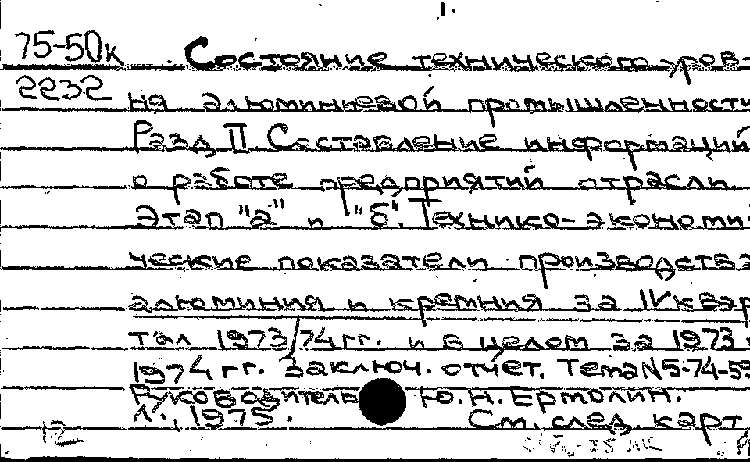 1.
75-50к Состояние технического уров-
2232 ня алюминиевой промышленности
Разд II Составление информаций
о работе предприятий отрасли
Этап "а" и "б". Технико-экономи
ческие показатели производства
алюминия и кремния за IV квар
тал 1973/74 гг. и в целом за 1973 и
1974 гг. Заключ. отчет. Тема N5-74-59
Руководитель Ю.Н. Ермолин.
Л., 1975. См. след. карт
12